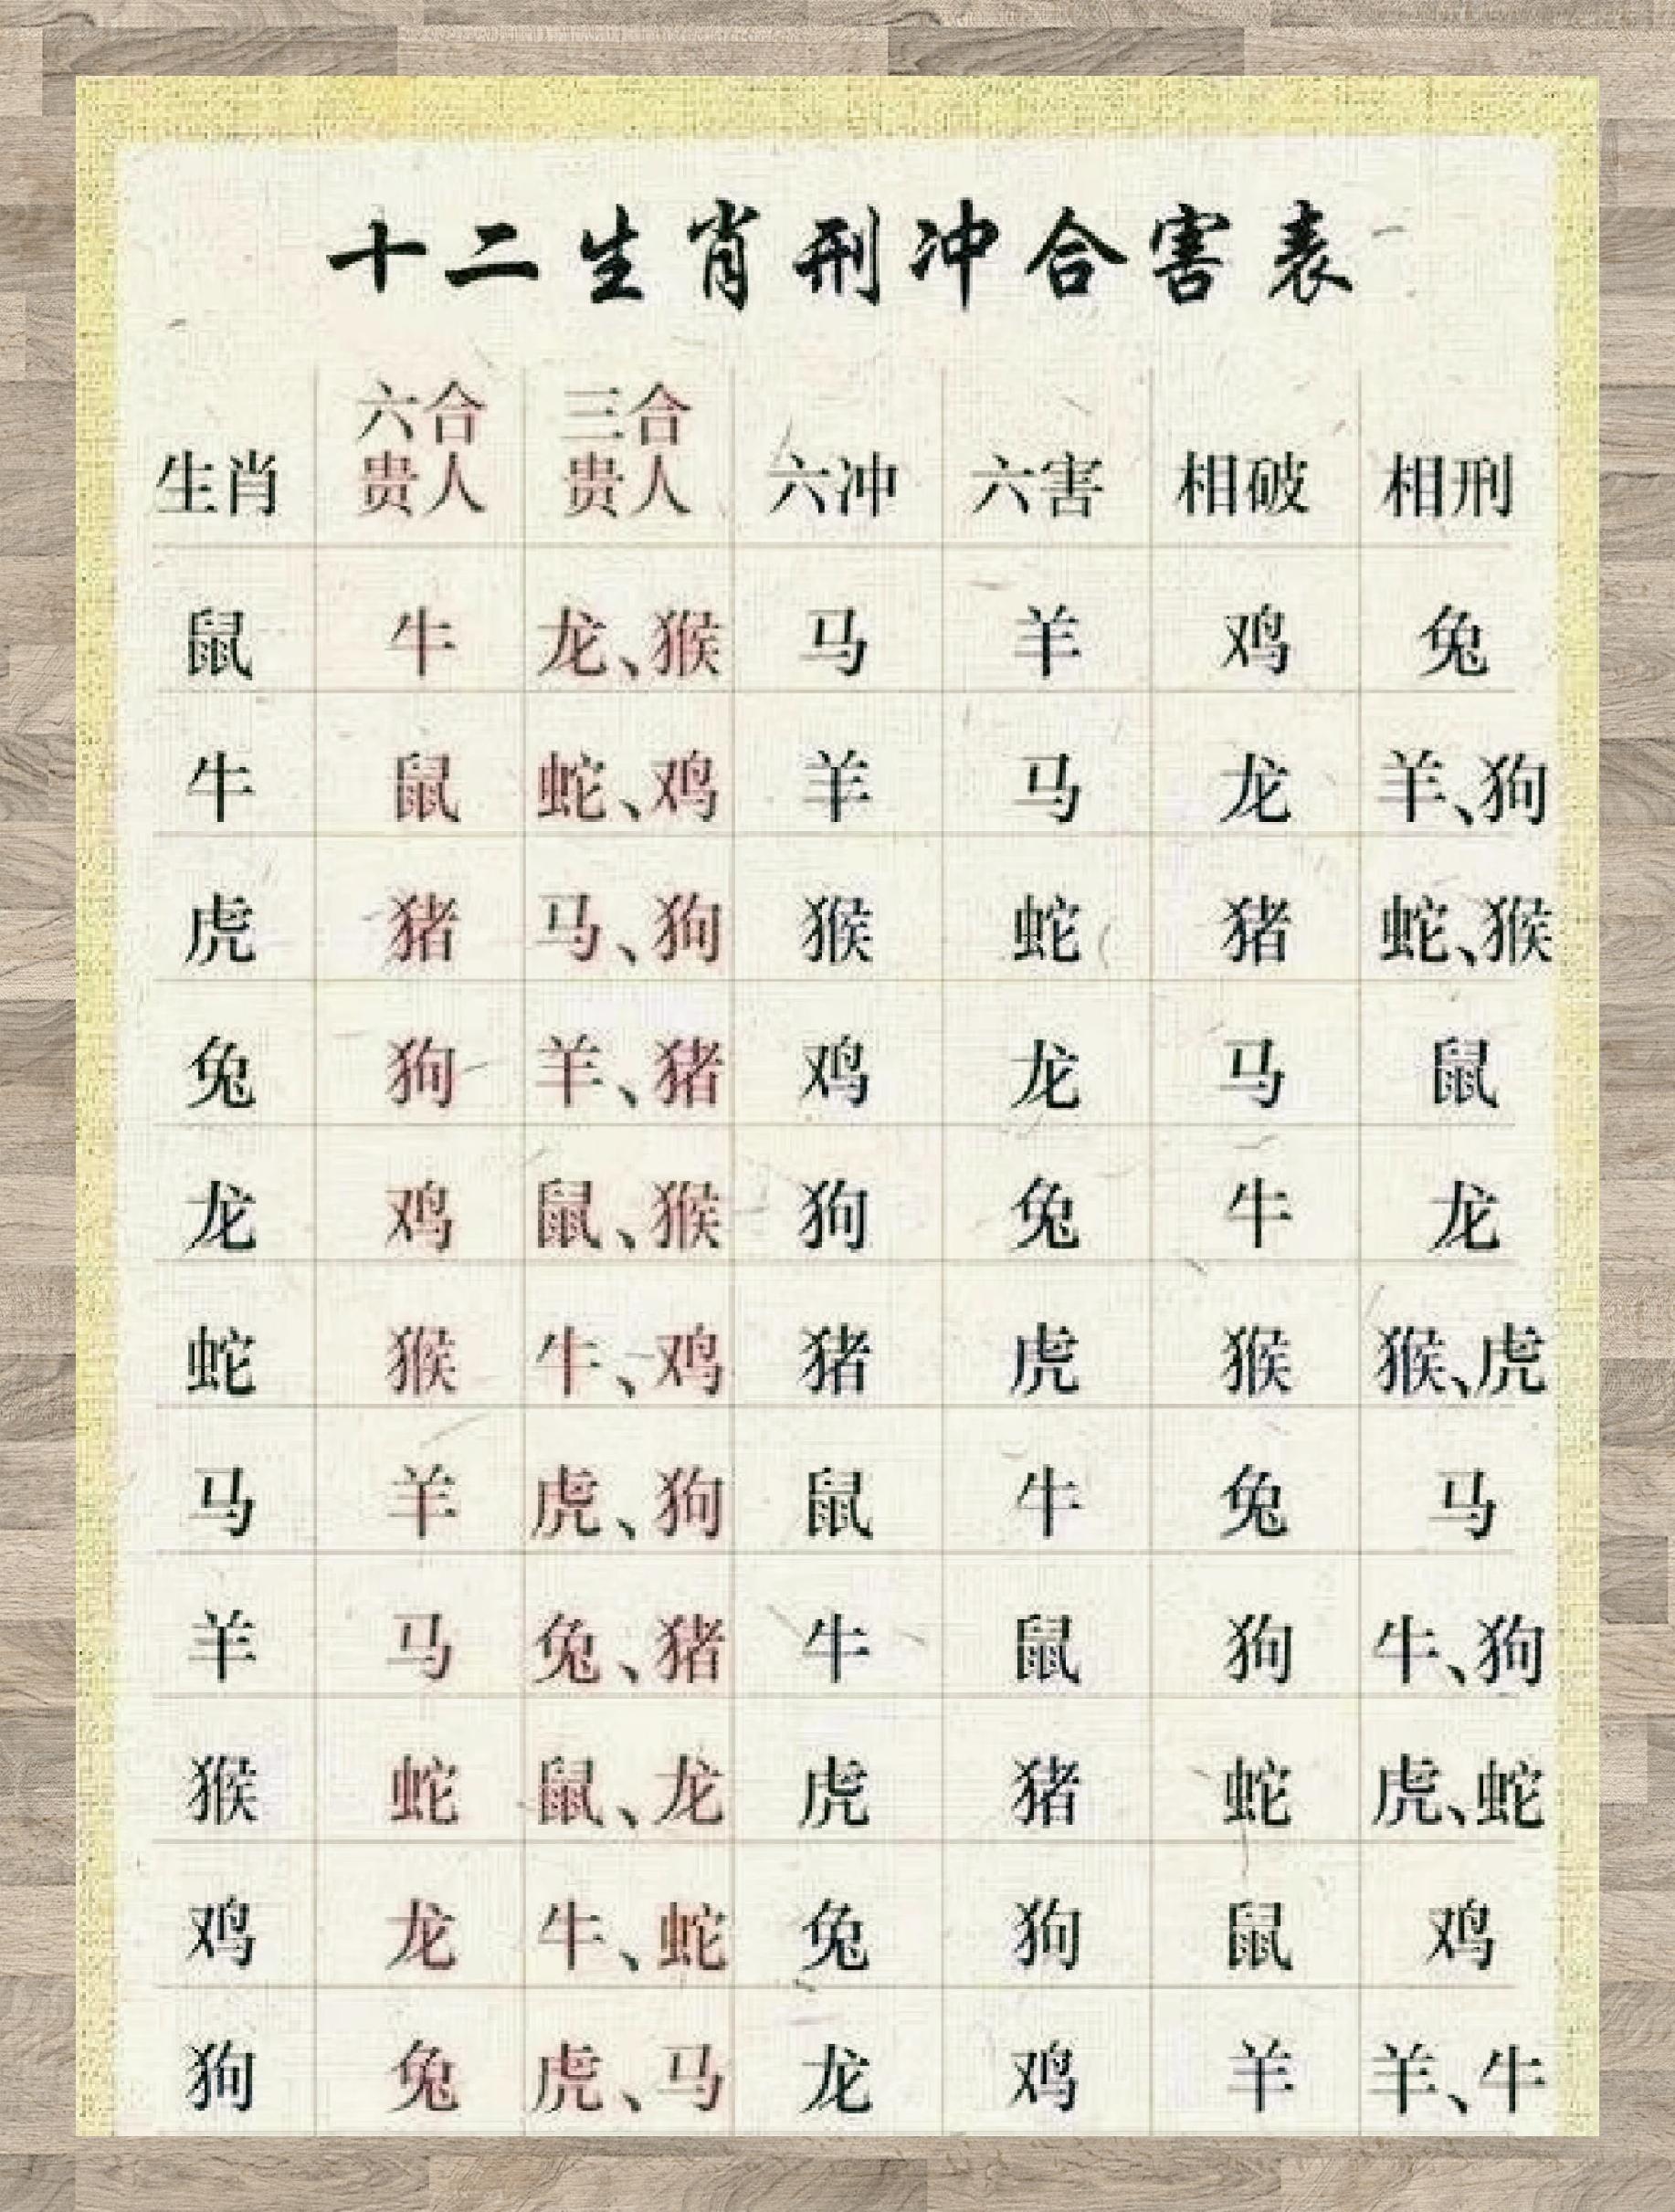 十二生肖刑冲合害表
生肖 六合贵人 三合贵人 六冲 六害 相破 相刑
鼠 牛 龙、猴 马 羊 鸡 兔
牛 鼠 蛇、鸡 羊 马 龙 羊、狗
虎 猪 马、狗 猴 蛇 猪 蛇、猴
兔 狗 羊、猪 鸡 龙 马 鼠
龙 鸡 鼠、猴 狗 兔 牛 龙
蛇 猴 牛、鸡 猪 虎 猴 猴、虎
马 羊 虎、狗 鼠 牛 兔 马
羊 马 兔、猪 牛 鼠 狗 牛、狗
猴 蛇 鼠、龙 虎 猪 蛇 虎、蛇
鸡 龙 牛、蛇 兔 狗 鼠 鸡
狗 兔 虎、马 龙 鸡 羊 羊、牛